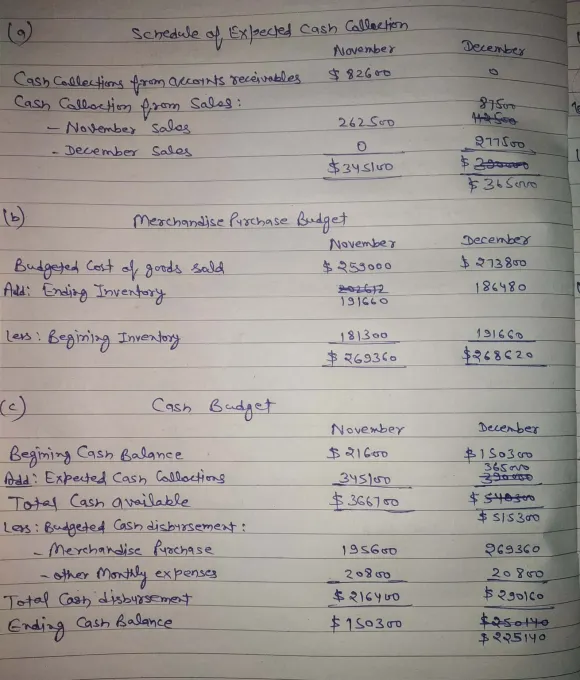 (a) Schedule of Expected Cash Collection
November December
Cash Collections from accounts receivables $ 82600 0
Cash Collection from Sales:
87500
- November Sales 262500 112500
- December Sales 0 277500
$ 345100 $ 390000
$ 365000
(b) Merchandise Purchase Budget
November December
Budgeted Cost of goods sold $ 259000 $ 273800
Add: Ending Inventory 202612 186480
191660
Less: Begining Inventory 181300 191660
$ 269360 $ 268620
(c) Cash Budget
November December
Begining Cash Balance $ 21600 $ 150300
365000
Add: Expected Cash Collections 345100 390000
Total Cash available $ 366700 $ 540300
$ 515300
Less: Budgeted Cash disbursement:
- Merchandise Purchase 195600 269360
- other Monthly expenses 20800 20800
Total Cash disbursement $ 216400 $ 290160
Ending Cash Balance $ 150300 $ 250140
$ 225140